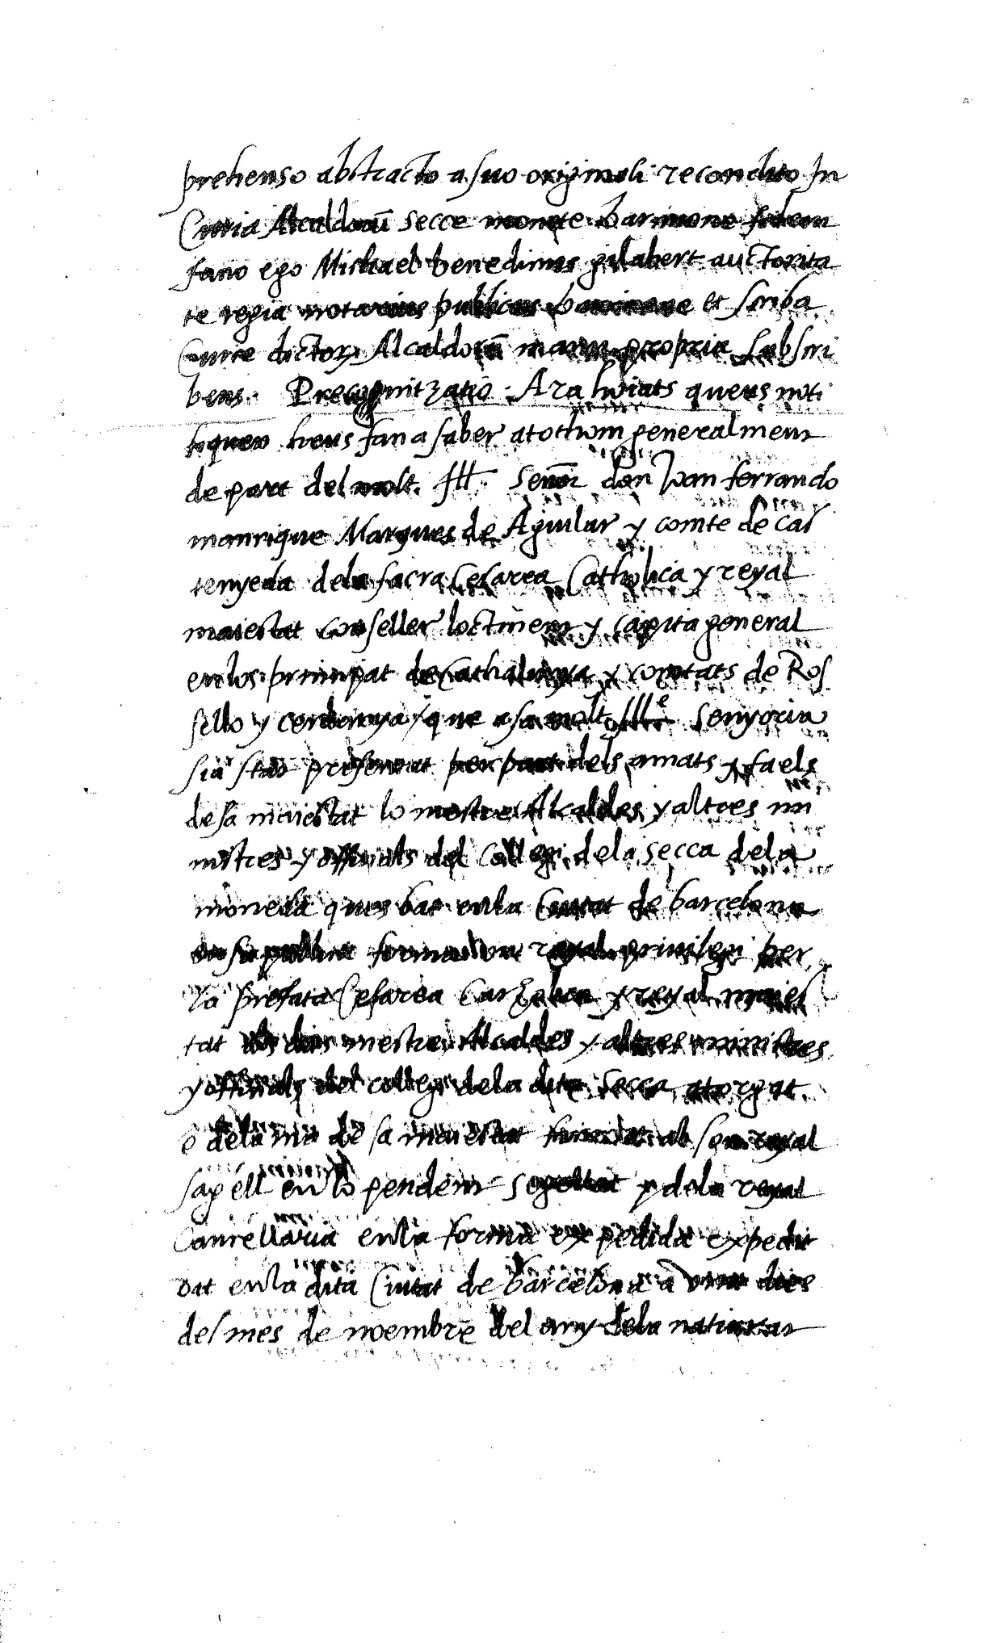 prehenso abstracto a suo originali recondito In
Curia Alcaldorũ secce monete barcinone fidem
facio ego Michael benedictus gilabert auctorita
te regia notarius publicus barcinone et scriba
Curie dictor Alcaldorũ manu propria subscri
bens. Preconitzatio. Ara hoiats queus noti
fiquen heus fan a saber atothom generalment
de part del molt Ill. Senõr don Joan ferrando
manrique Marques de Aguilar y comte de Cas
tenyeda dela sacra Cesarea Catholica y reyal
maiestat Conseller loctinent y capita general
en los principat de Cathalunya y comtats de Ros
sello y cerdanya / que a sa molt Ill.e Senyoria
sia stat presentat per part dels amats y faels
de sa maiestat lo mestre Alcaldes y altres mi
nistres y officials del Collegi dela Secca dela
moneda ques bat en la Ciutat de barcelona
en sa publica forma lo reyal privilegi per
la prefata Cesarea Catholica y reyal maies
tat als dits mestre Alcaldes y altres ministres
y officials del collegi dela dita Secca atorgat
o dela ma de sa maiestat ab son reyal
sagell en lo pendent segellat y dela reyal
Cancellaria en la forma expedida expedit
dat en la dita Ciutat de barcelona a vint dies
del mes de noembre del any dela nativitat